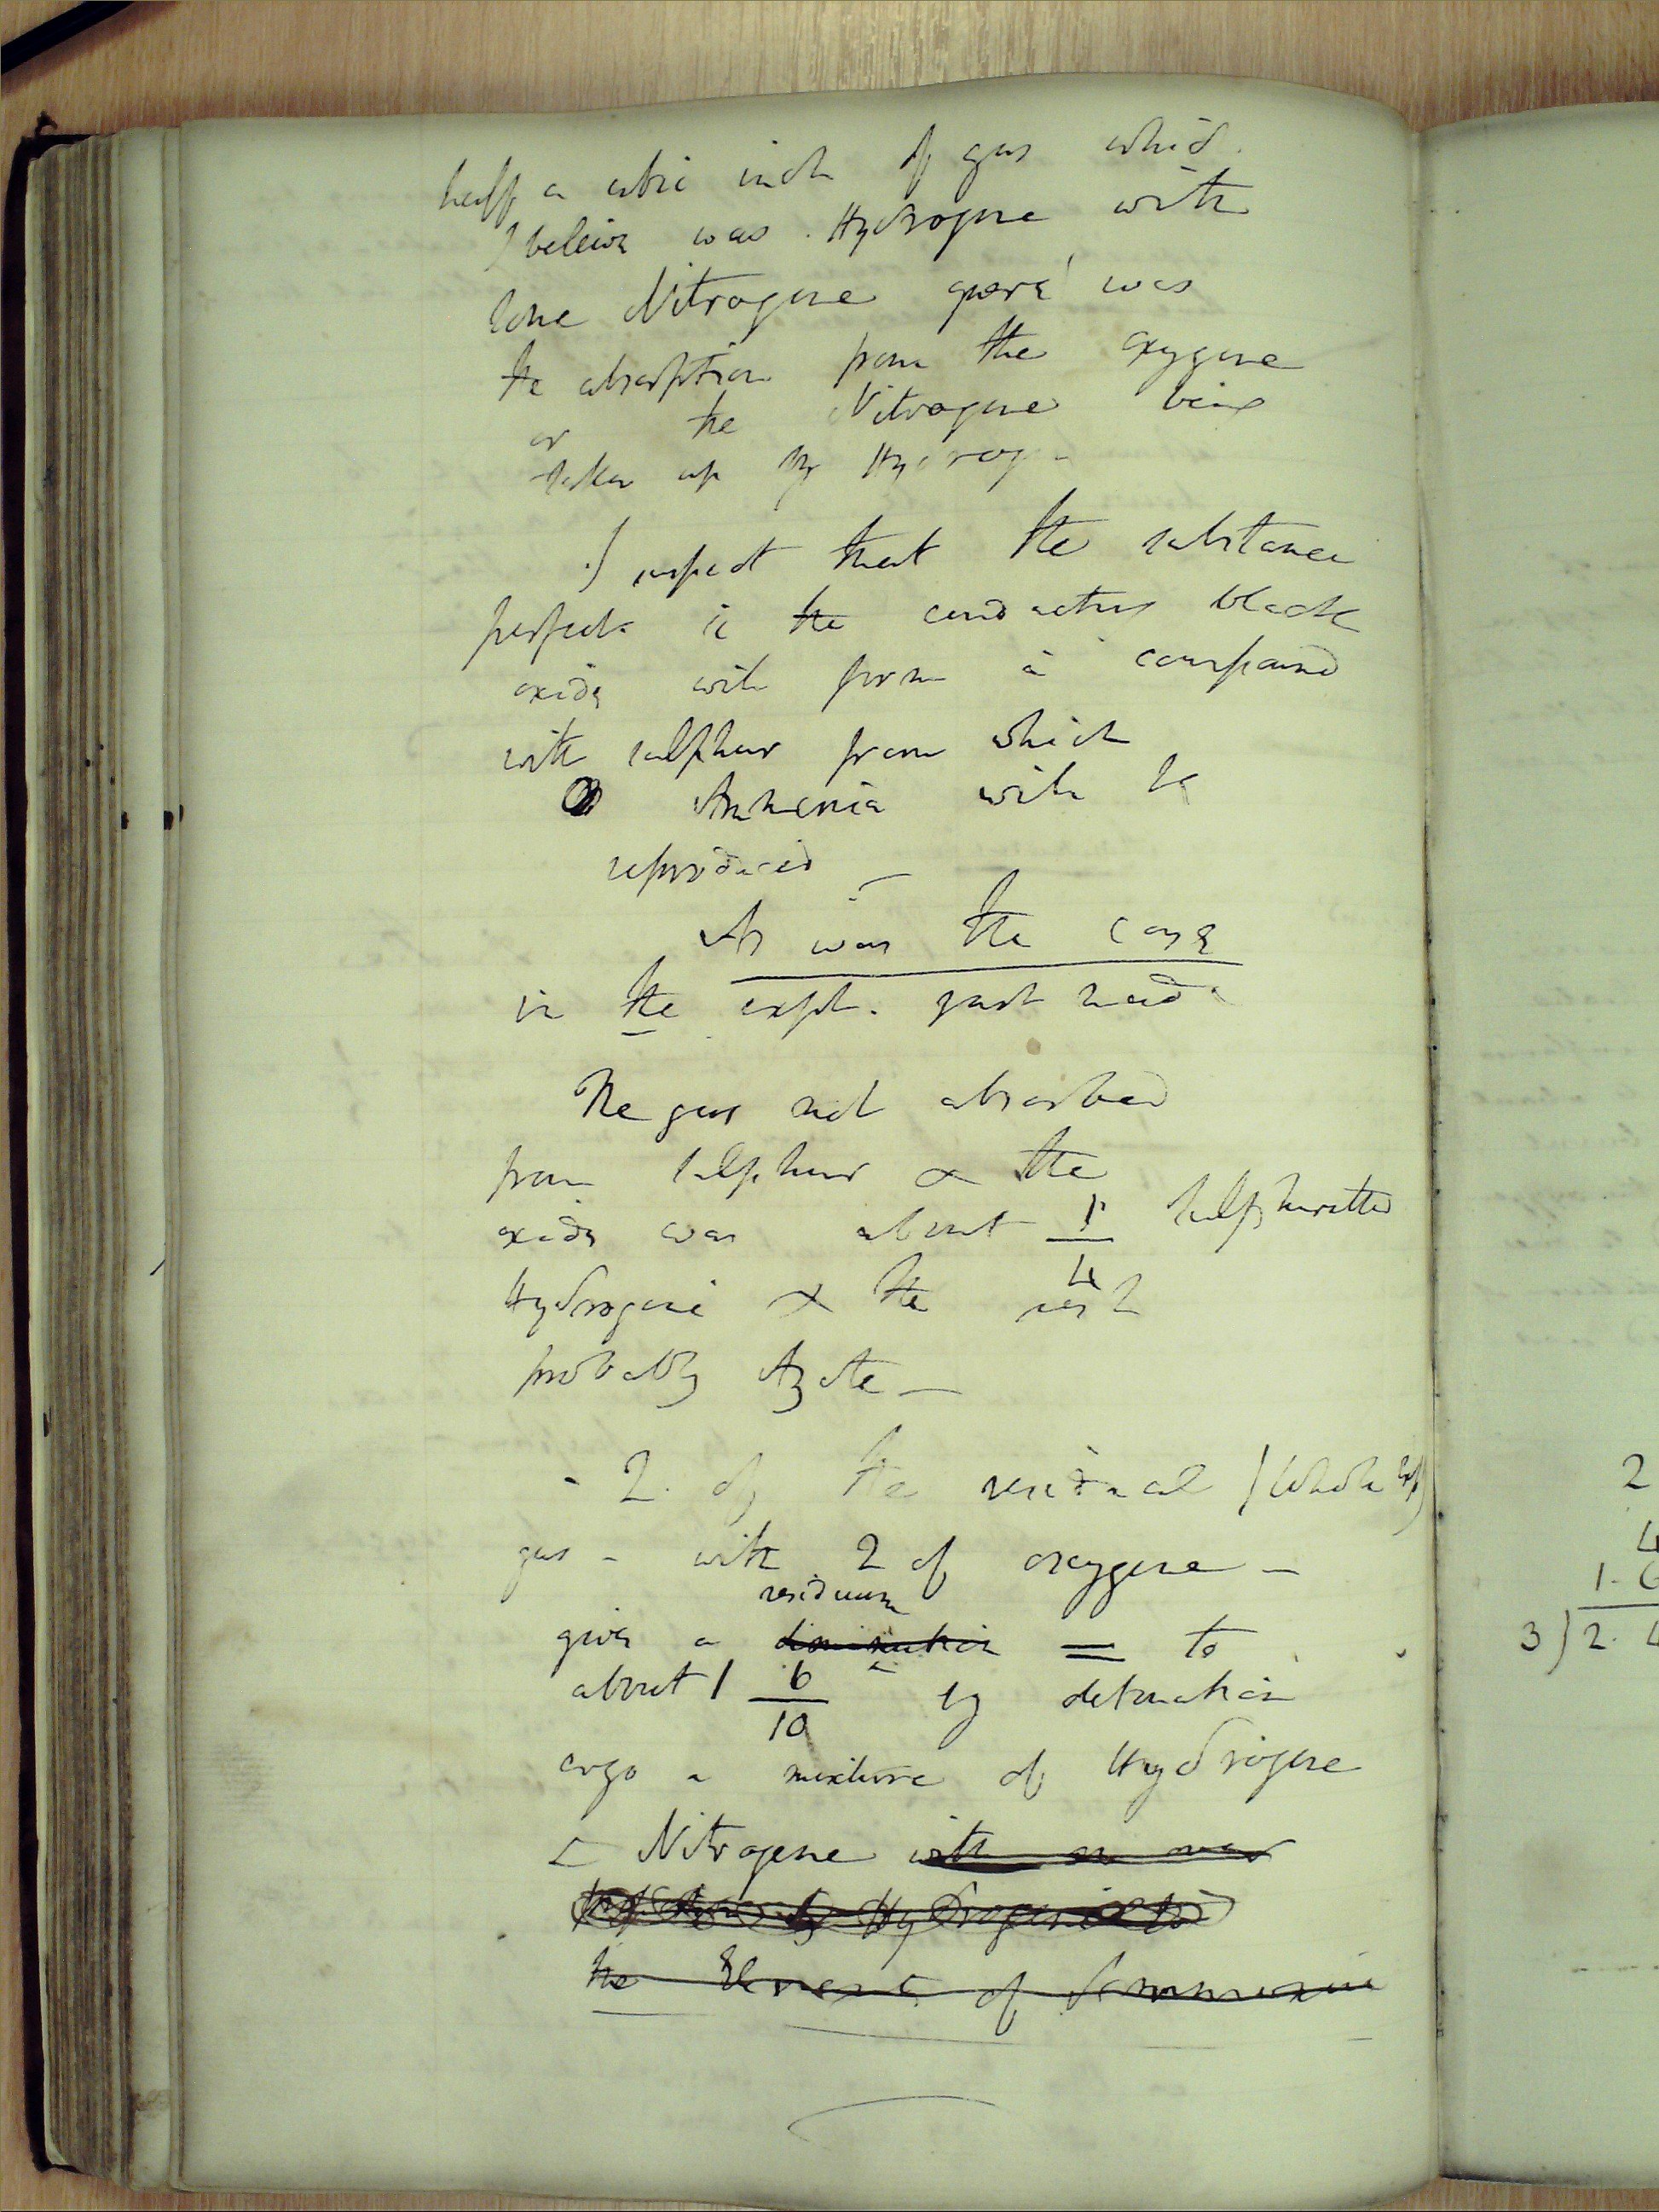 half a cubic inch of gas which
I beleive was Hydrogene with
some Nitrogene quere was
the absorption from the oxygene
or the Nitrogene being
taken up by Hydrog
I suspect that the substance
perfect is the conducting black
oxide will form a compound
with sulphur from which
Ammonia will be
reproduced —
As was the case
in the expt. just made
The gas not absorbed
from sulphur & the
oxide was about 1/4 sulphuretted
Hydrogene & the rest
probably Azote —
- 2. of the residual (whole
gas - with 2 of oxygene —
residuum
gives a diminution = to
about 1 6/10 by detonation
ergo a mixture of Hydrogene
& Nitrogene with
by Hydrogene
the of
2
4
1. 6
3) 2. 4